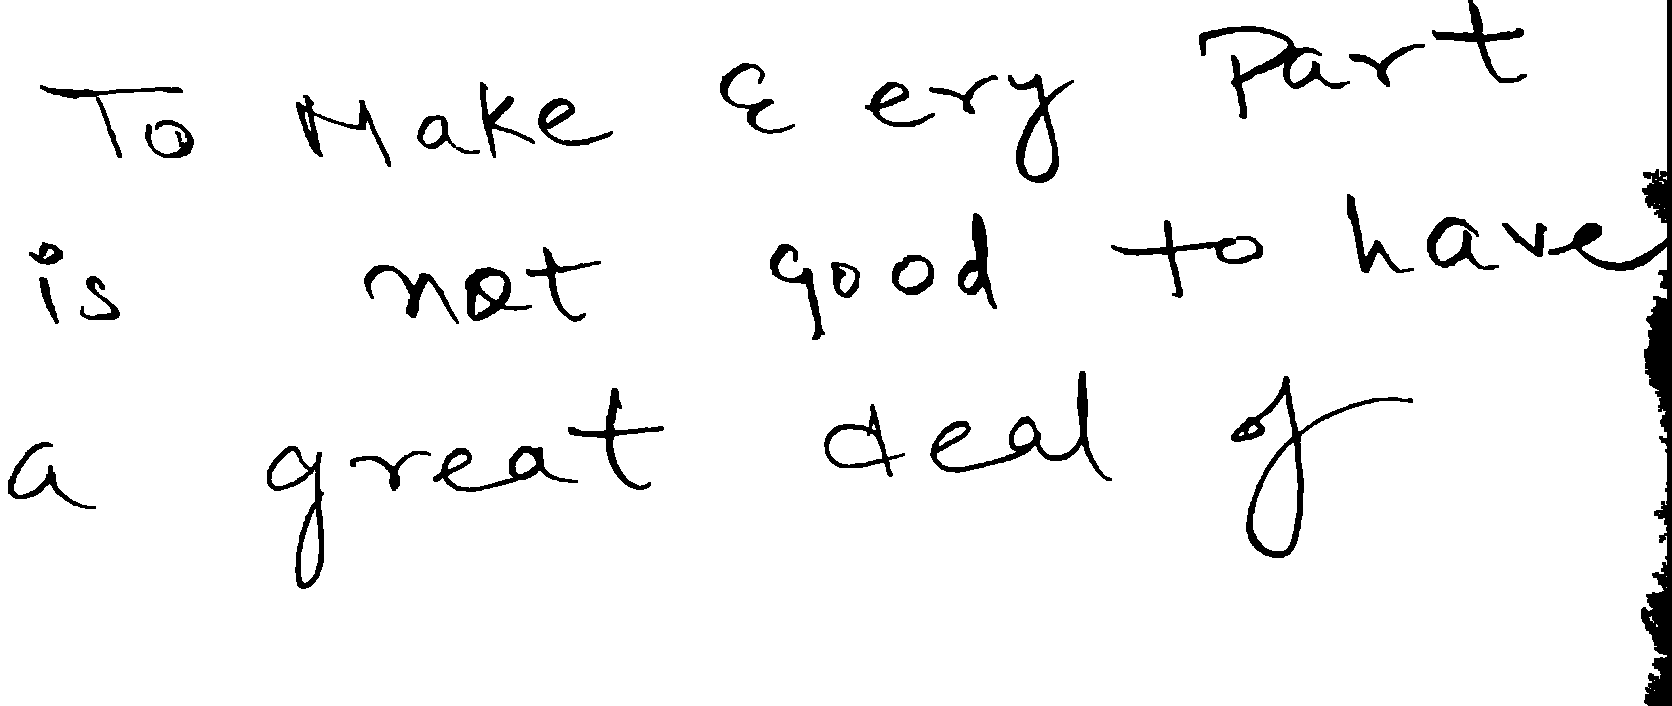 To Make Every Part
is not good to have
a great deal of